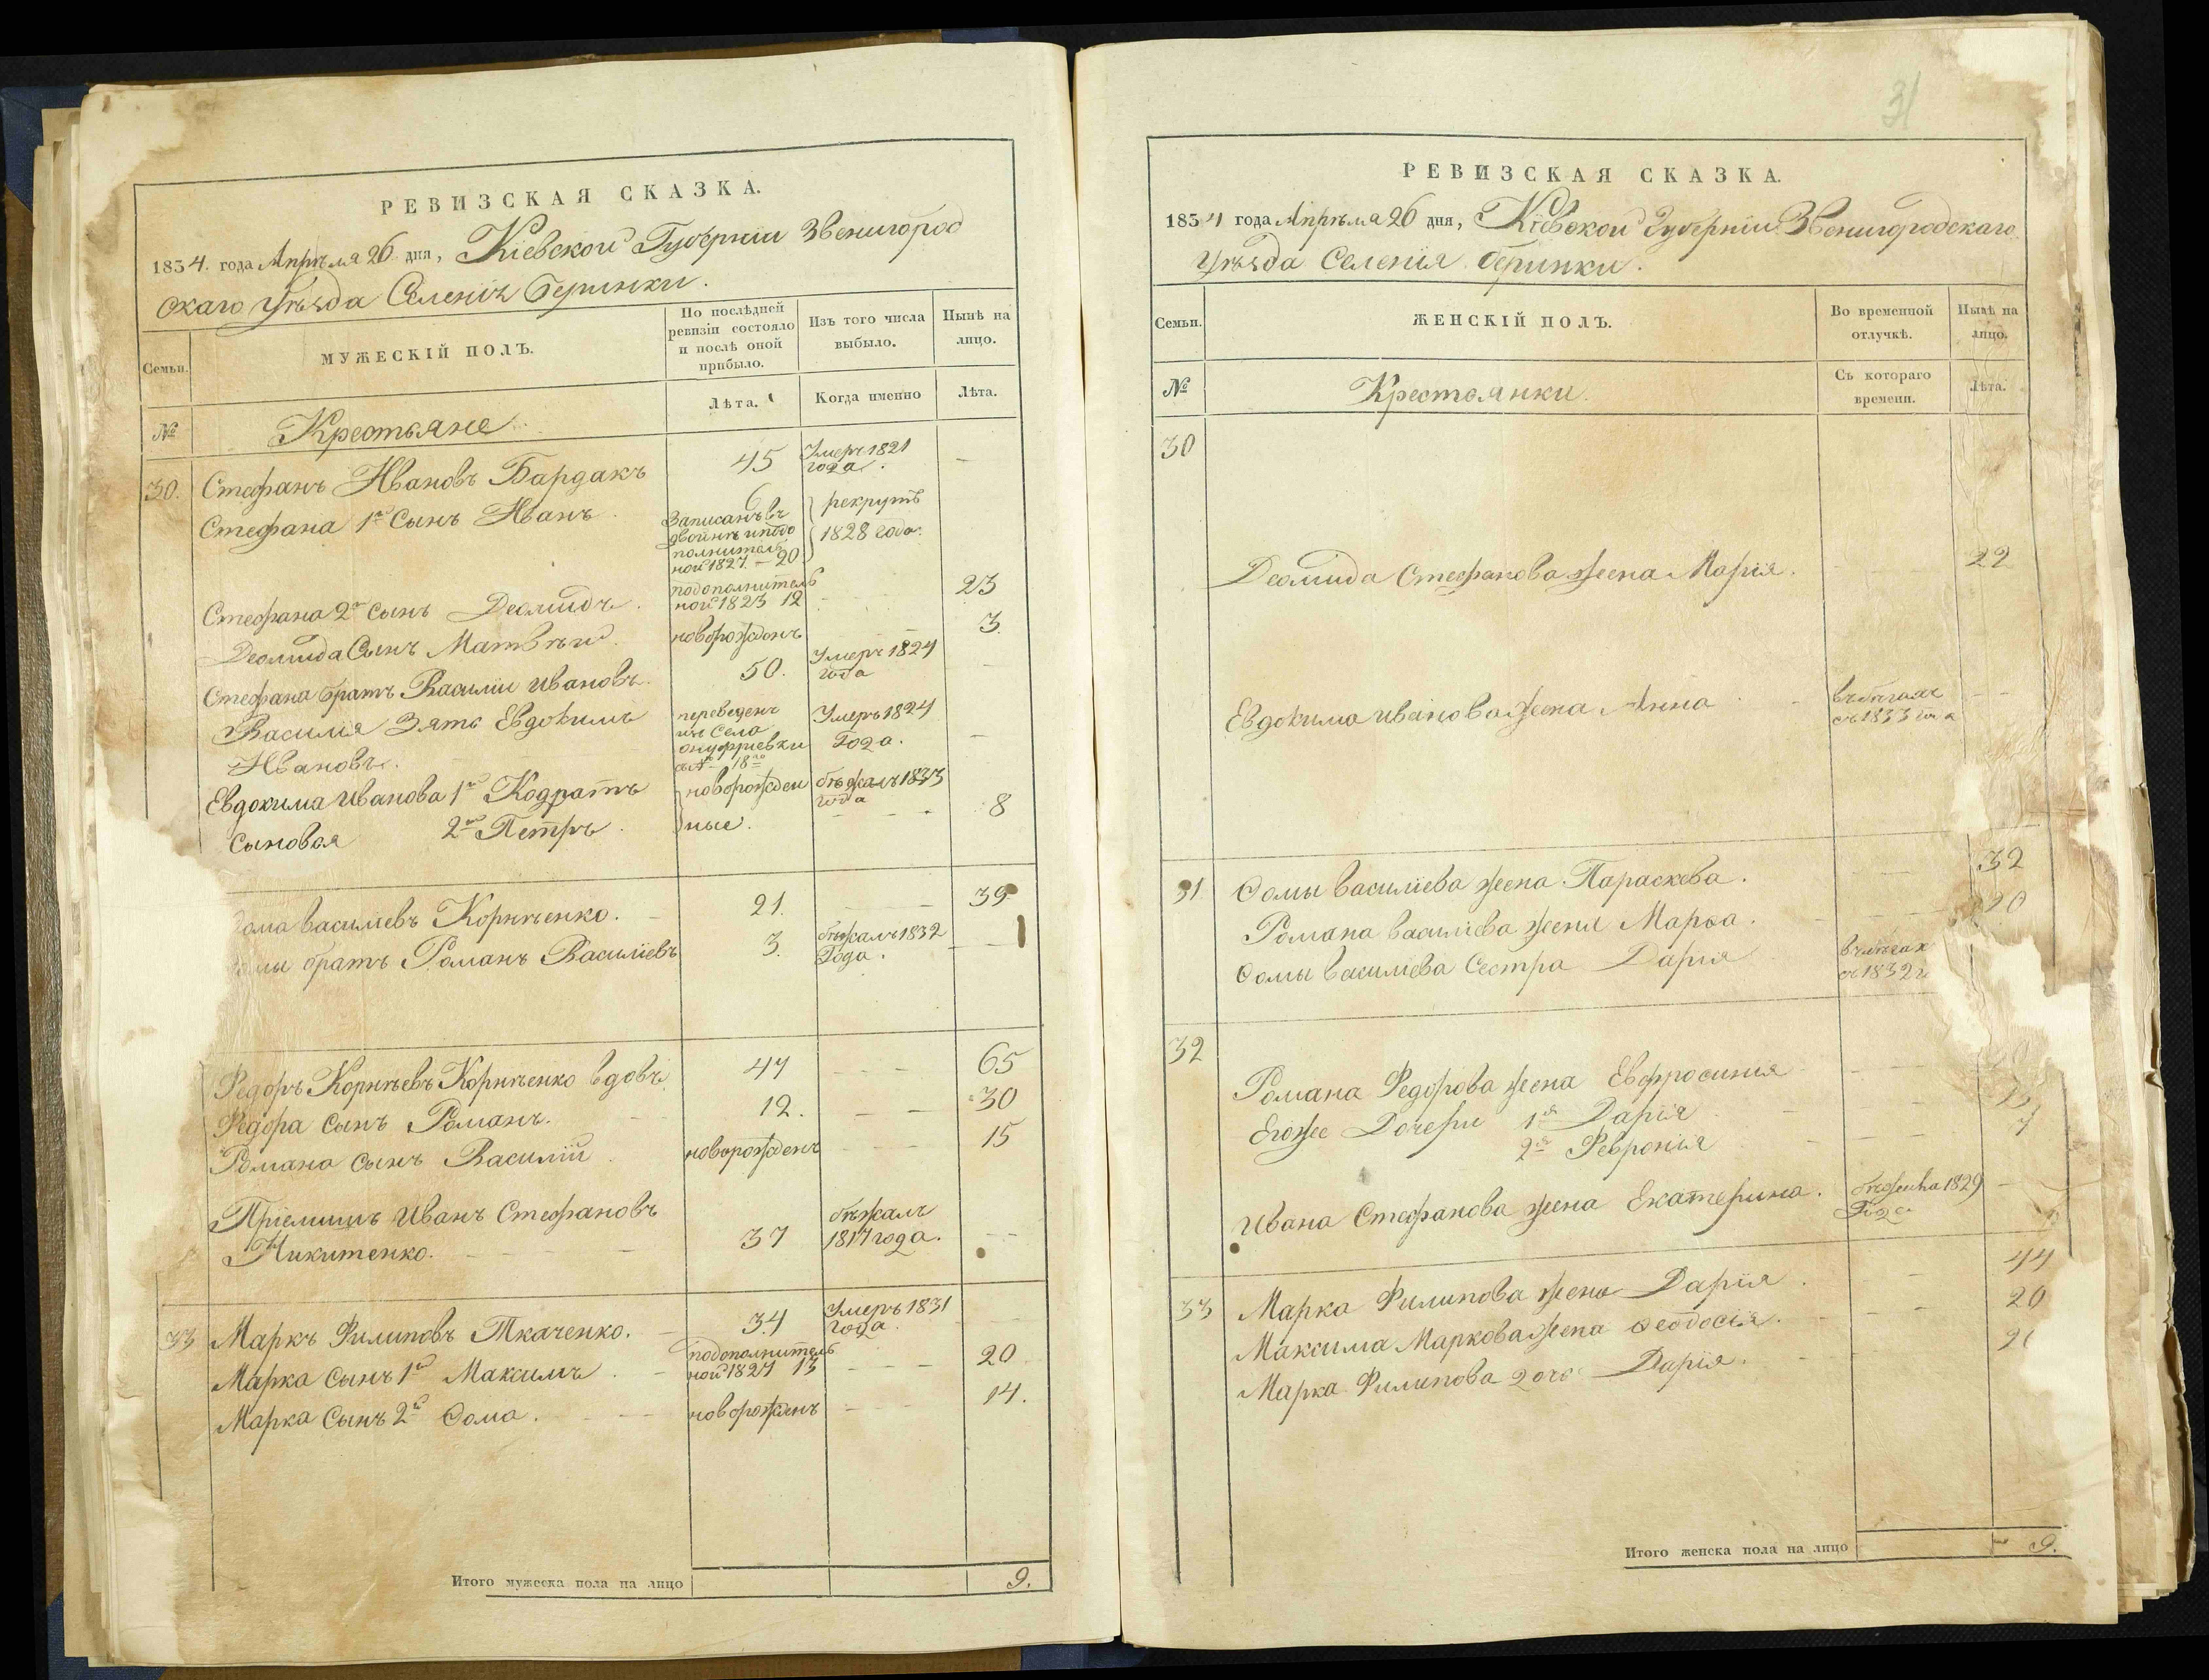 РЕВИЗСКАЯ СКАЗКА.
1834. года Апрѣля 26 дня, Кіевской Губерніи Звенигород
скаго Уѣзда Селенія
Семьи.
МУЖЕСКІЙ ПОЛЪ.
По послѣдней ревизіи состояло и послѣ оной прибыло.
Изъ того числа выбыло.
Нынѣ на лицо.
№
Крестьяне
Лѣта.
Когда именно
Лѣта.
30. Стефанъ Ивановъ Бардакъ 45 Умеръ 1821 года. —
Стефана 1й Сынъ Иванъ. 6 рекрутъ
Записанъ въ 1828 года.
полнитель
ной 1827 — 20
Стефана 2й сынъ Деомидъ. подополнитель
ной 1823 12 — 23
Деомида Сынъ Матвѣй. новорожденъ — 3.
Стефана братъ Василій Ивановъ. 50. Умеръ 1824 года —
Василія Зять Евдокимъ переведенъ Умеръ 1824
Ивановъ. изъ Села Онуфріевки Года. —
18
Евдокима Иванова 1й Кодратъ новорожден бѣжалъ 1833 года
Сыновья 2й Петръ. ные. — 8
Василіевъ Корнѣенко. — 21. — 39
братъ Романъ Василіевъ 3. бѣжалъ 1832 Года. —
Федоръ Корнѣевъ Корнѣенко вдовъ 47 — 65
Федора сынъ Романъ. 12. — 30
Романа сынъ Василій новорожденъ — 15
Пріемышъ Иванъ Стефановъ бѣжалъ
Никитенко. 37 1817 года. —
33 Маркъ Филиповъ Ткаченко. — 34 Умеръ 1831 года. —
Марка Сынъ 1й Максимъ подополнитель
ной 1827 13 — 20
Марка Сынъ 2й Ѳома. новорожденъ — 14.
Итого мужеска пола на лицо 9.
31
РЕВИЗСКАЯ СКАЗКА.
1834 года Апрѣля 26 дня, Кіевской Губерніи Звенигородскаго
Уѣзда Селенія
Семьи.
ЖЕНСКІЙ ПОЛЪ.
Во временной отлучкѣ.
Нынѣ на лицо.
№
Крестьянки.
Съ котораго времени.
Лѣта.
30
Деомида Стефанова жена Марія. 22
Евдокима Иванова жена Анна въ бѣгахъ
съ 1833 года
31 Ѳомы Василіева жена Параскева. — 32
Романа Василіева жена Марѳа. — 20
Ѳомы Василіева Сестра Дарія въ бѣгах
съ 1832 г
32
Романа Федорова жена Евфросинія
Егожъ Дочери 1я Дарія
2я Февронія 7
Ивана Стефанова жена Екатерина. бѣжена 1829 Года —
33 Марка Филипова жена Дарія. — 44
Максима Маркова жена Ѳеодосія. — 20
Марка Филипова дочь Дарія.
Итого женска пола на лицо 9.